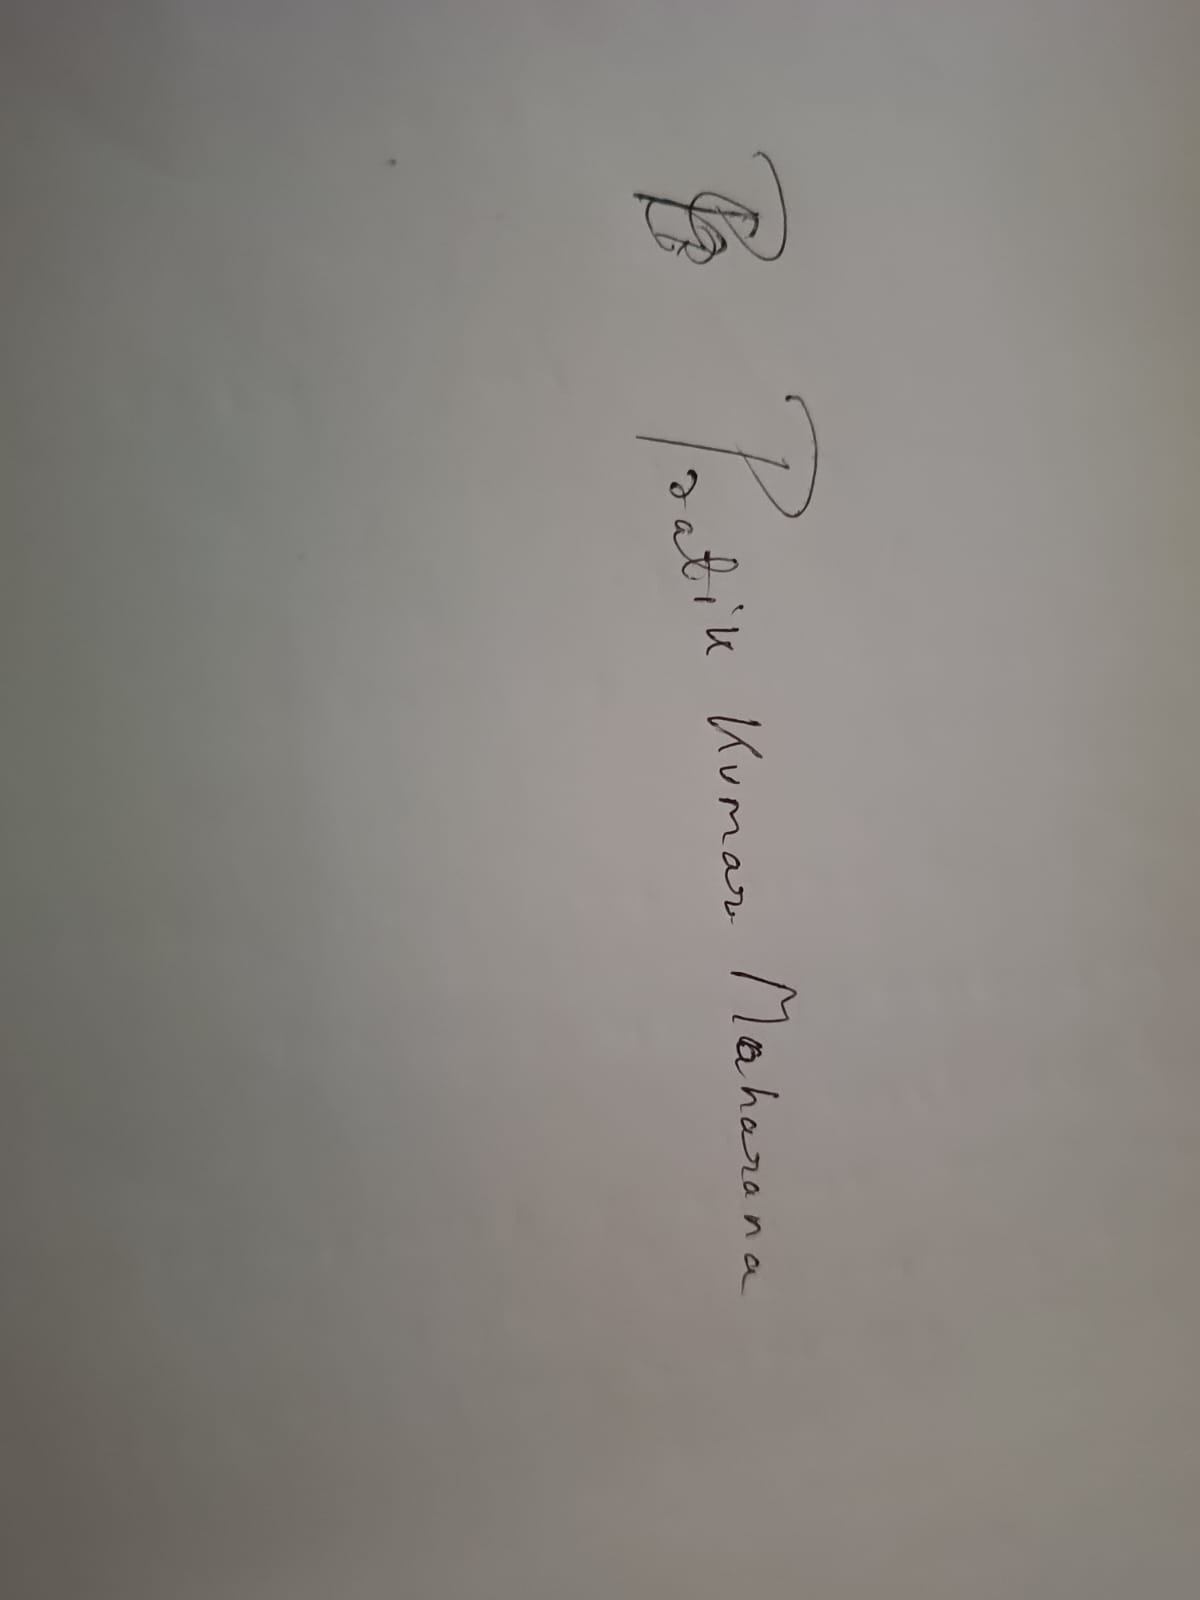 Pratik Kumar Maharana